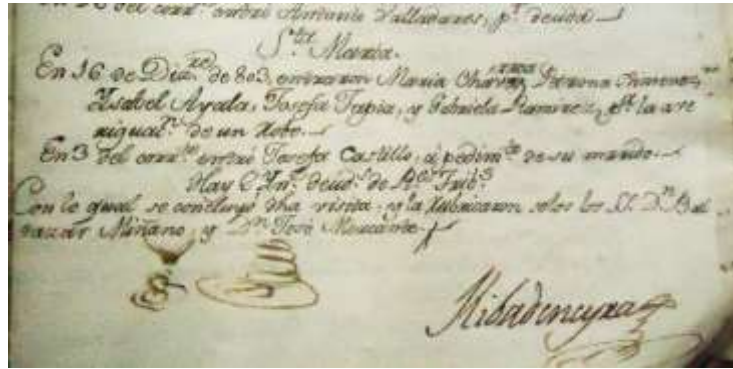 del corr.te entró Antonio Valladares, p.r deuda
S.ta Maria.
En 16 de Diz.re de 803, entraron Maria Chávez, Petrona Ximenez,
Ysabel Ayala, Josefa Tapia, y Gabriela Ramirez, p.r la ave
riguac.n de un Robo.
En 3 del corr.te entró Josefa Castillo, á pedim.to de su marido.
Hay 6 Yn.s deud.s de R.s Trib.s
Con lo qual se concluyó dha visita y la rubricaron solos los SS. D.n Bal
tazar Miñano, y D.n José Moscante.
Ribadeneyra